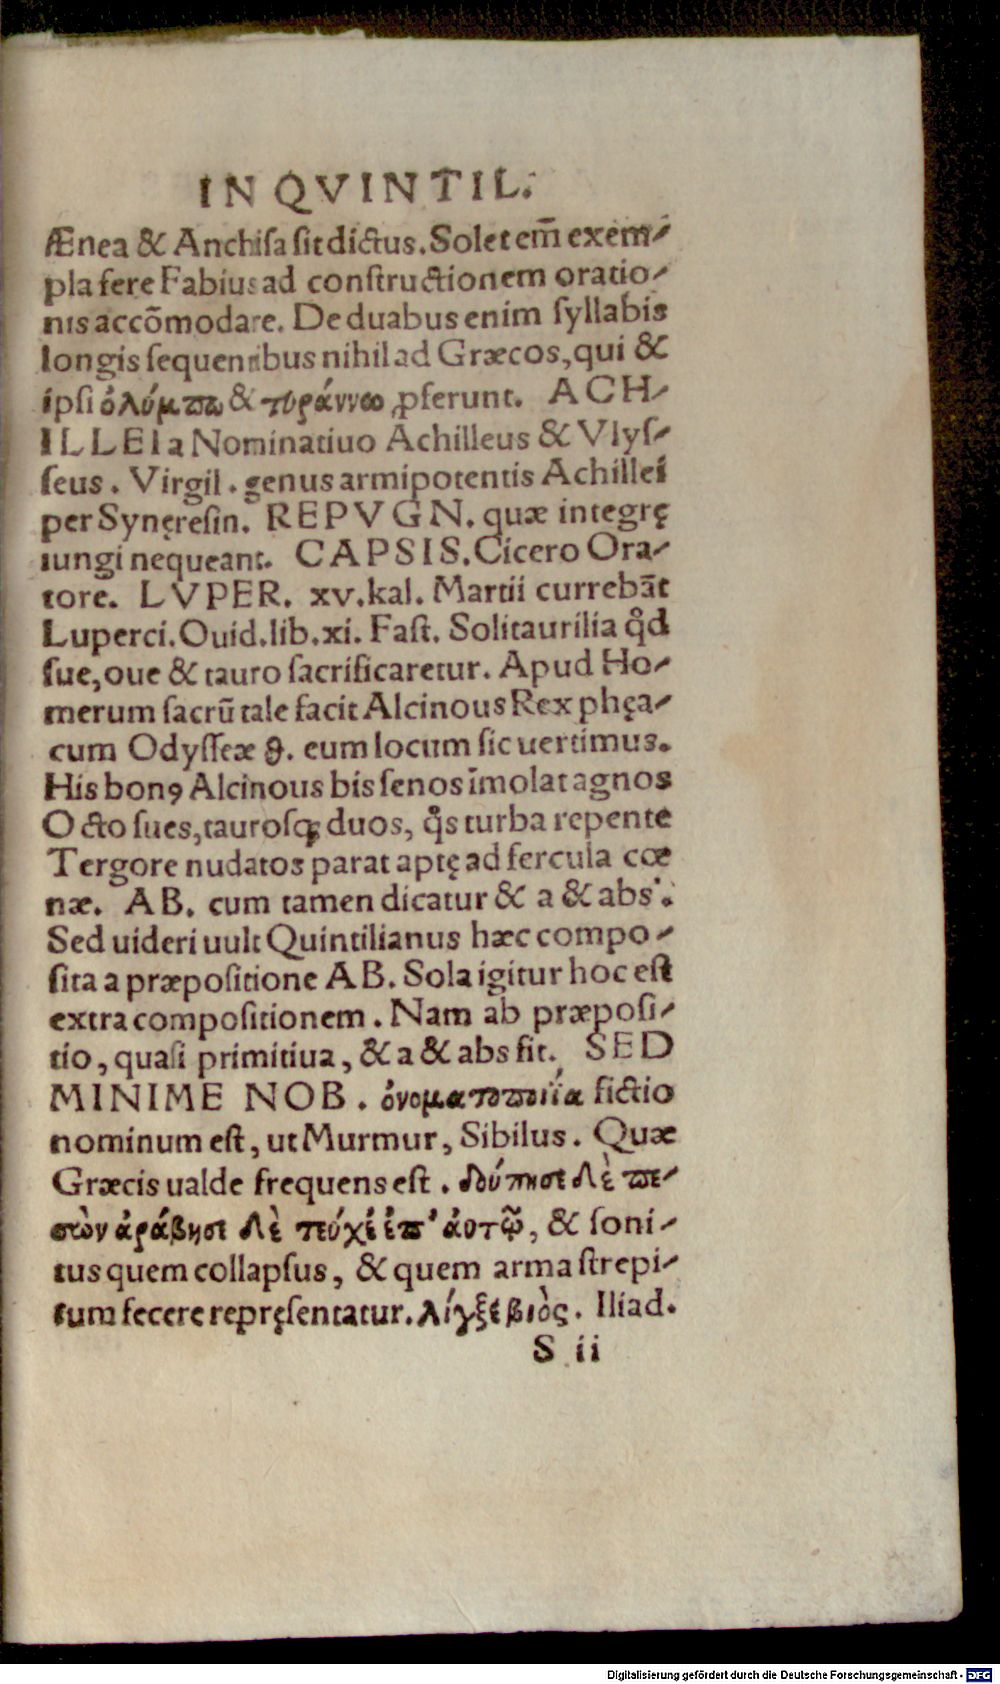 IN QVINTIL.
Ænea & Anchiſa ſit dictus. Solet em̃ exem⸗
pla fere Fabius ad conſtructionem oratio⸗
nis accõmodare. De duabus enim ſyllabis
longis ſequentibus nihil ad Græcos, qui &
ipſi ὀλύμπω & τυράννω ꝓferunt. ACH⸗
ILLEI a Nominatiuo Achilleus & Vlyſ⸗
ſeus. Virgil. genus armipotentis Achillei
per Synęreſin. REPVGN. quæ integrę
iungi nequeant. CAPSIS. Cicero Ora⸗
tore. LVPER. xv. kal. Martii currebãt
Luperci. Ouid. lib. xi. Faſt. Solitaurilia qd̊
ſue, oue & tauro ſacrificaretur. Apud Ho⸗
merum ſacrũ tale facit Alcinous Rex phęa⸗
cum Odyſſeæ θ. eum locum ſic uertimus.
His bonꝰ Alcinous bis ſenos īmolat agnos
Octo ſues, tauroſqꝫ duos, q̊s turba repente
Tergore nudatos parat aptę ad fercula cœ
næ. AB. cum tamen dicatur & a & abs.
Sed uideri uult Quintilianus hæc compo⸗
ſita a præpoſitione AB. Sola igitur hoc eſt
extra compoſitionem. Nam ab præpoſi⸗
tio, quaſi primitiua, & a & abs fit. SED
MINIME NOB. ὀνοματοποιΐα fictio
nominum eſt, ut Murmur, Sibilus. Quæ
Græcis ualde frequens eſt. δούπησε δὲ πε⸗
σὼν ἀράβησε δὲ τεύχέ ἐπ' ἀυτῷ, & ſoni⸗
tus quem collapſus, & quem arma ſtrepi⸗
tum fecere repręſentatur. λίγξε βιὸς. Iliad.
S ii
Digitalisierung gefördert durch die Deutsche Forschungsgemeinschaft - DFG